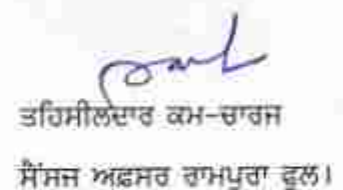 ਤਹਿਸੀਲਦਾਰ ਕਮ-ਚਾਰਜ
ਸੈਂਸਜ ਅਫ਼ਸਰ ਰਾਮਪੁਰਾ ਫੂਲ।